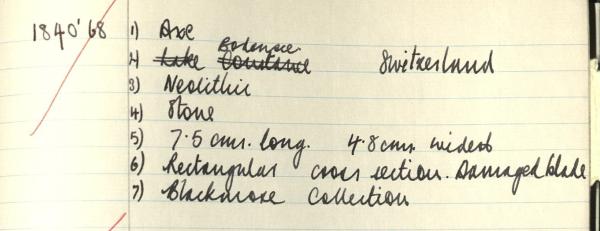 1840'68 1) Axe
Bodensee
2) Lake Constance Switzerland
3) Neolithic
4) Stone
5) 7.5 cms. long. 4.8 cms. widest
6) Rectangular cross section. Damaged blade
7) Blackmore Collection